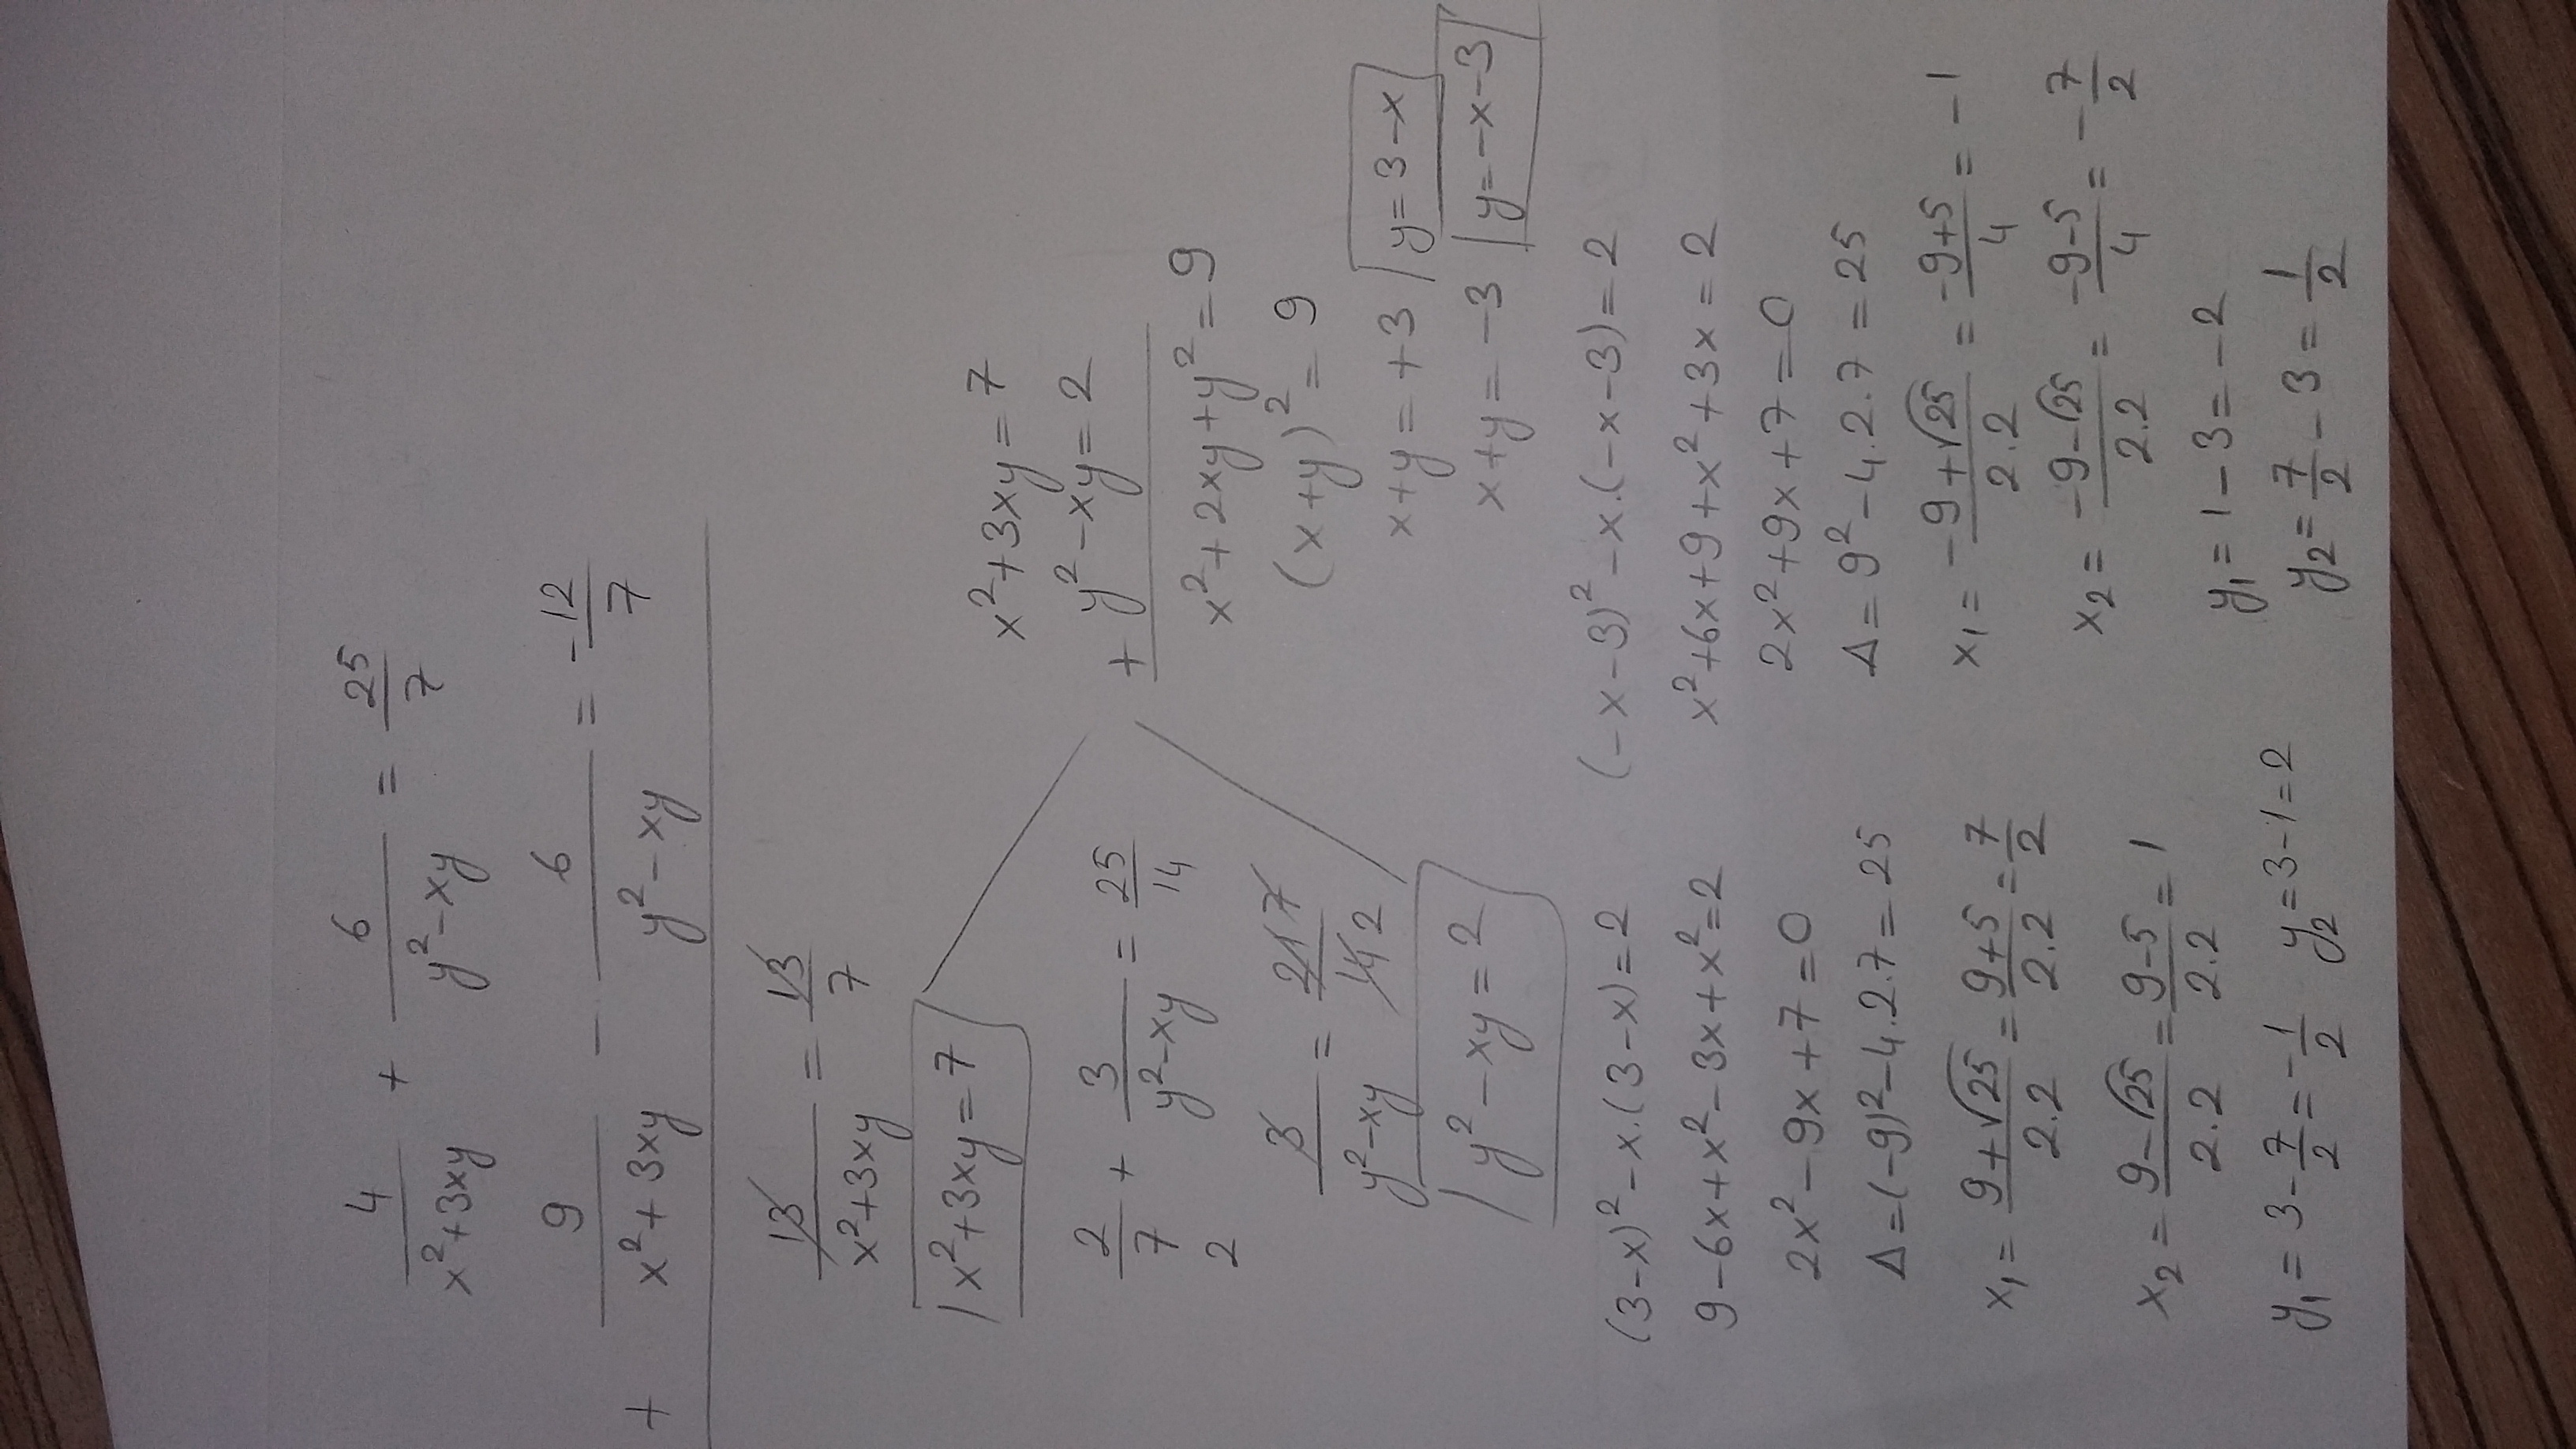 4/(x²+3xy) + 6/(y²-xy) = 25/7
+ 9/(x²+3xy) - 6/(y²-xy) = -12/7
13/(x²+3xy) = 13/7
x²+3xy=7
2/7 + 3/(y²-xy) = 25/14
2
3/(y²-xy) = 217/142
y²-xy=2
x²+3xy=7
+ y²-xy=2
x²+2xy+y²=9
(x+y)²=9
x+y=+3 y=3-x
x+y=-3 y=-x-3
(3-x)²-x.(3-x)=2
9-6x+x²-3x+x²=2
2x²-9x+7=0
Δ=(-9)²-4.2.7=25
x₁= (9+√25)/2.2 = (9+5)/2.2 = 7/2
x₂= (9-√25)/2.2 = (9-5)/2.2 = 1
y₁=3-7/2=-1/2 y₂=3-1=2
(-x-3)²-x.(-x-3)=2
x²+6x+9+x²+3x=2
2x²+9x+7=0
Δ=9²-4.2.7=25
x₁= (-9+√25)/2.2 = (-9+5)/4 = -1
x₂= (-9-√25)/2.2 = (-9-5)/4 = -7/2
y₁=1-3=-2
y₂=7/2-3=1/2